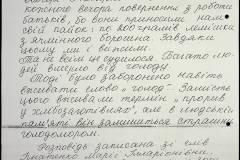 кожного вечора повернення з роботи
батьків, бо вони приносили нам
свій пайок: по 200 грамів лемішки
з ячмінного борошна. Завдяки
цьому ми і вижили.
Та не всім це судилося. Багато лю-
дей вмерло від голоду.
Тоді було заборонено навіть
вживати слово "голод". Замість
цього вживали термін "прорив
у хлібозаготівлях", але в людській
пам'яті він залишиться страшним
голодомором.
Розповідь записана зі слів
Ігнатенко Марії Макарівни